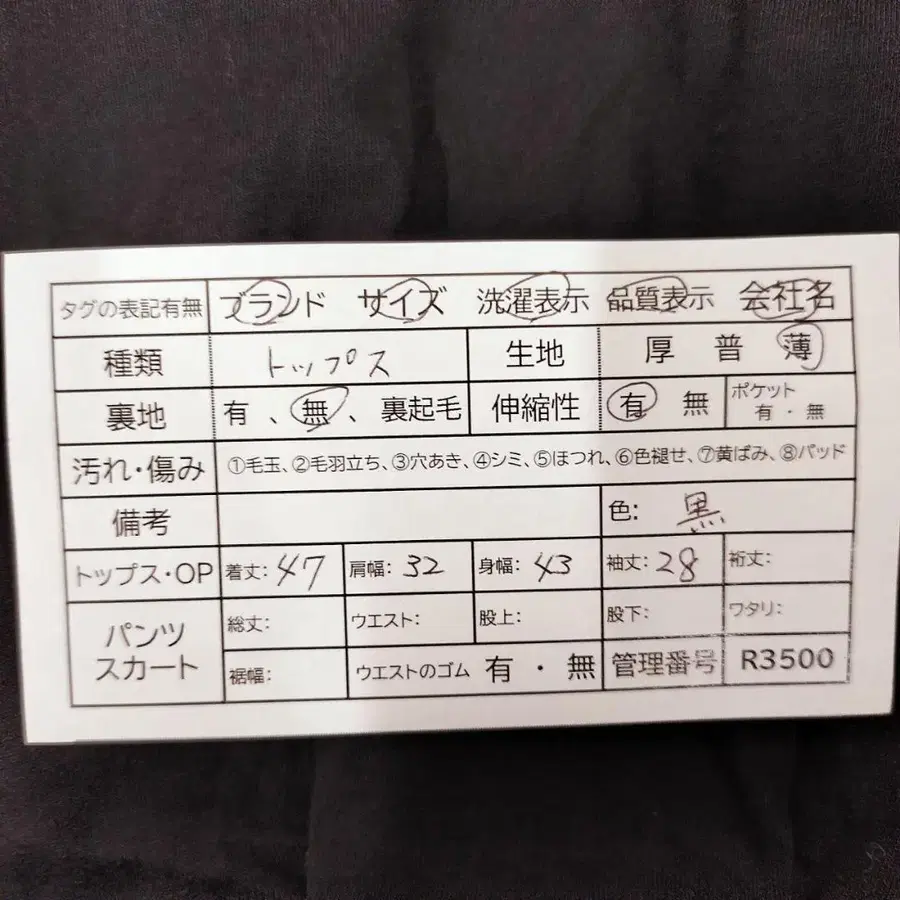 タグの表記有無 ブランド サイズ 洗濯表示 品質表示 会社名
種類 トップス 生地 厚 普 薄
裏地 有、無、裏起毛 伸縮性 有 無 ポケット 有・無
汚れ・傷み ①毛玉、②毛羽立ち、③穴あき、④シミ、⑤ほつれ、⑥色褪せ、⑦黄ばみ、⑧パッド
備考 色: 黒
トップス・OP 着丈: 47 肩幅: 32 身幅: 43 袖丈: 28 裄丈:
パンツ スカート 総丈: ウエスト: 股上: 股下: ワタリ:
裾幅: ウエストのゴム 有・無 管理番号 R3500